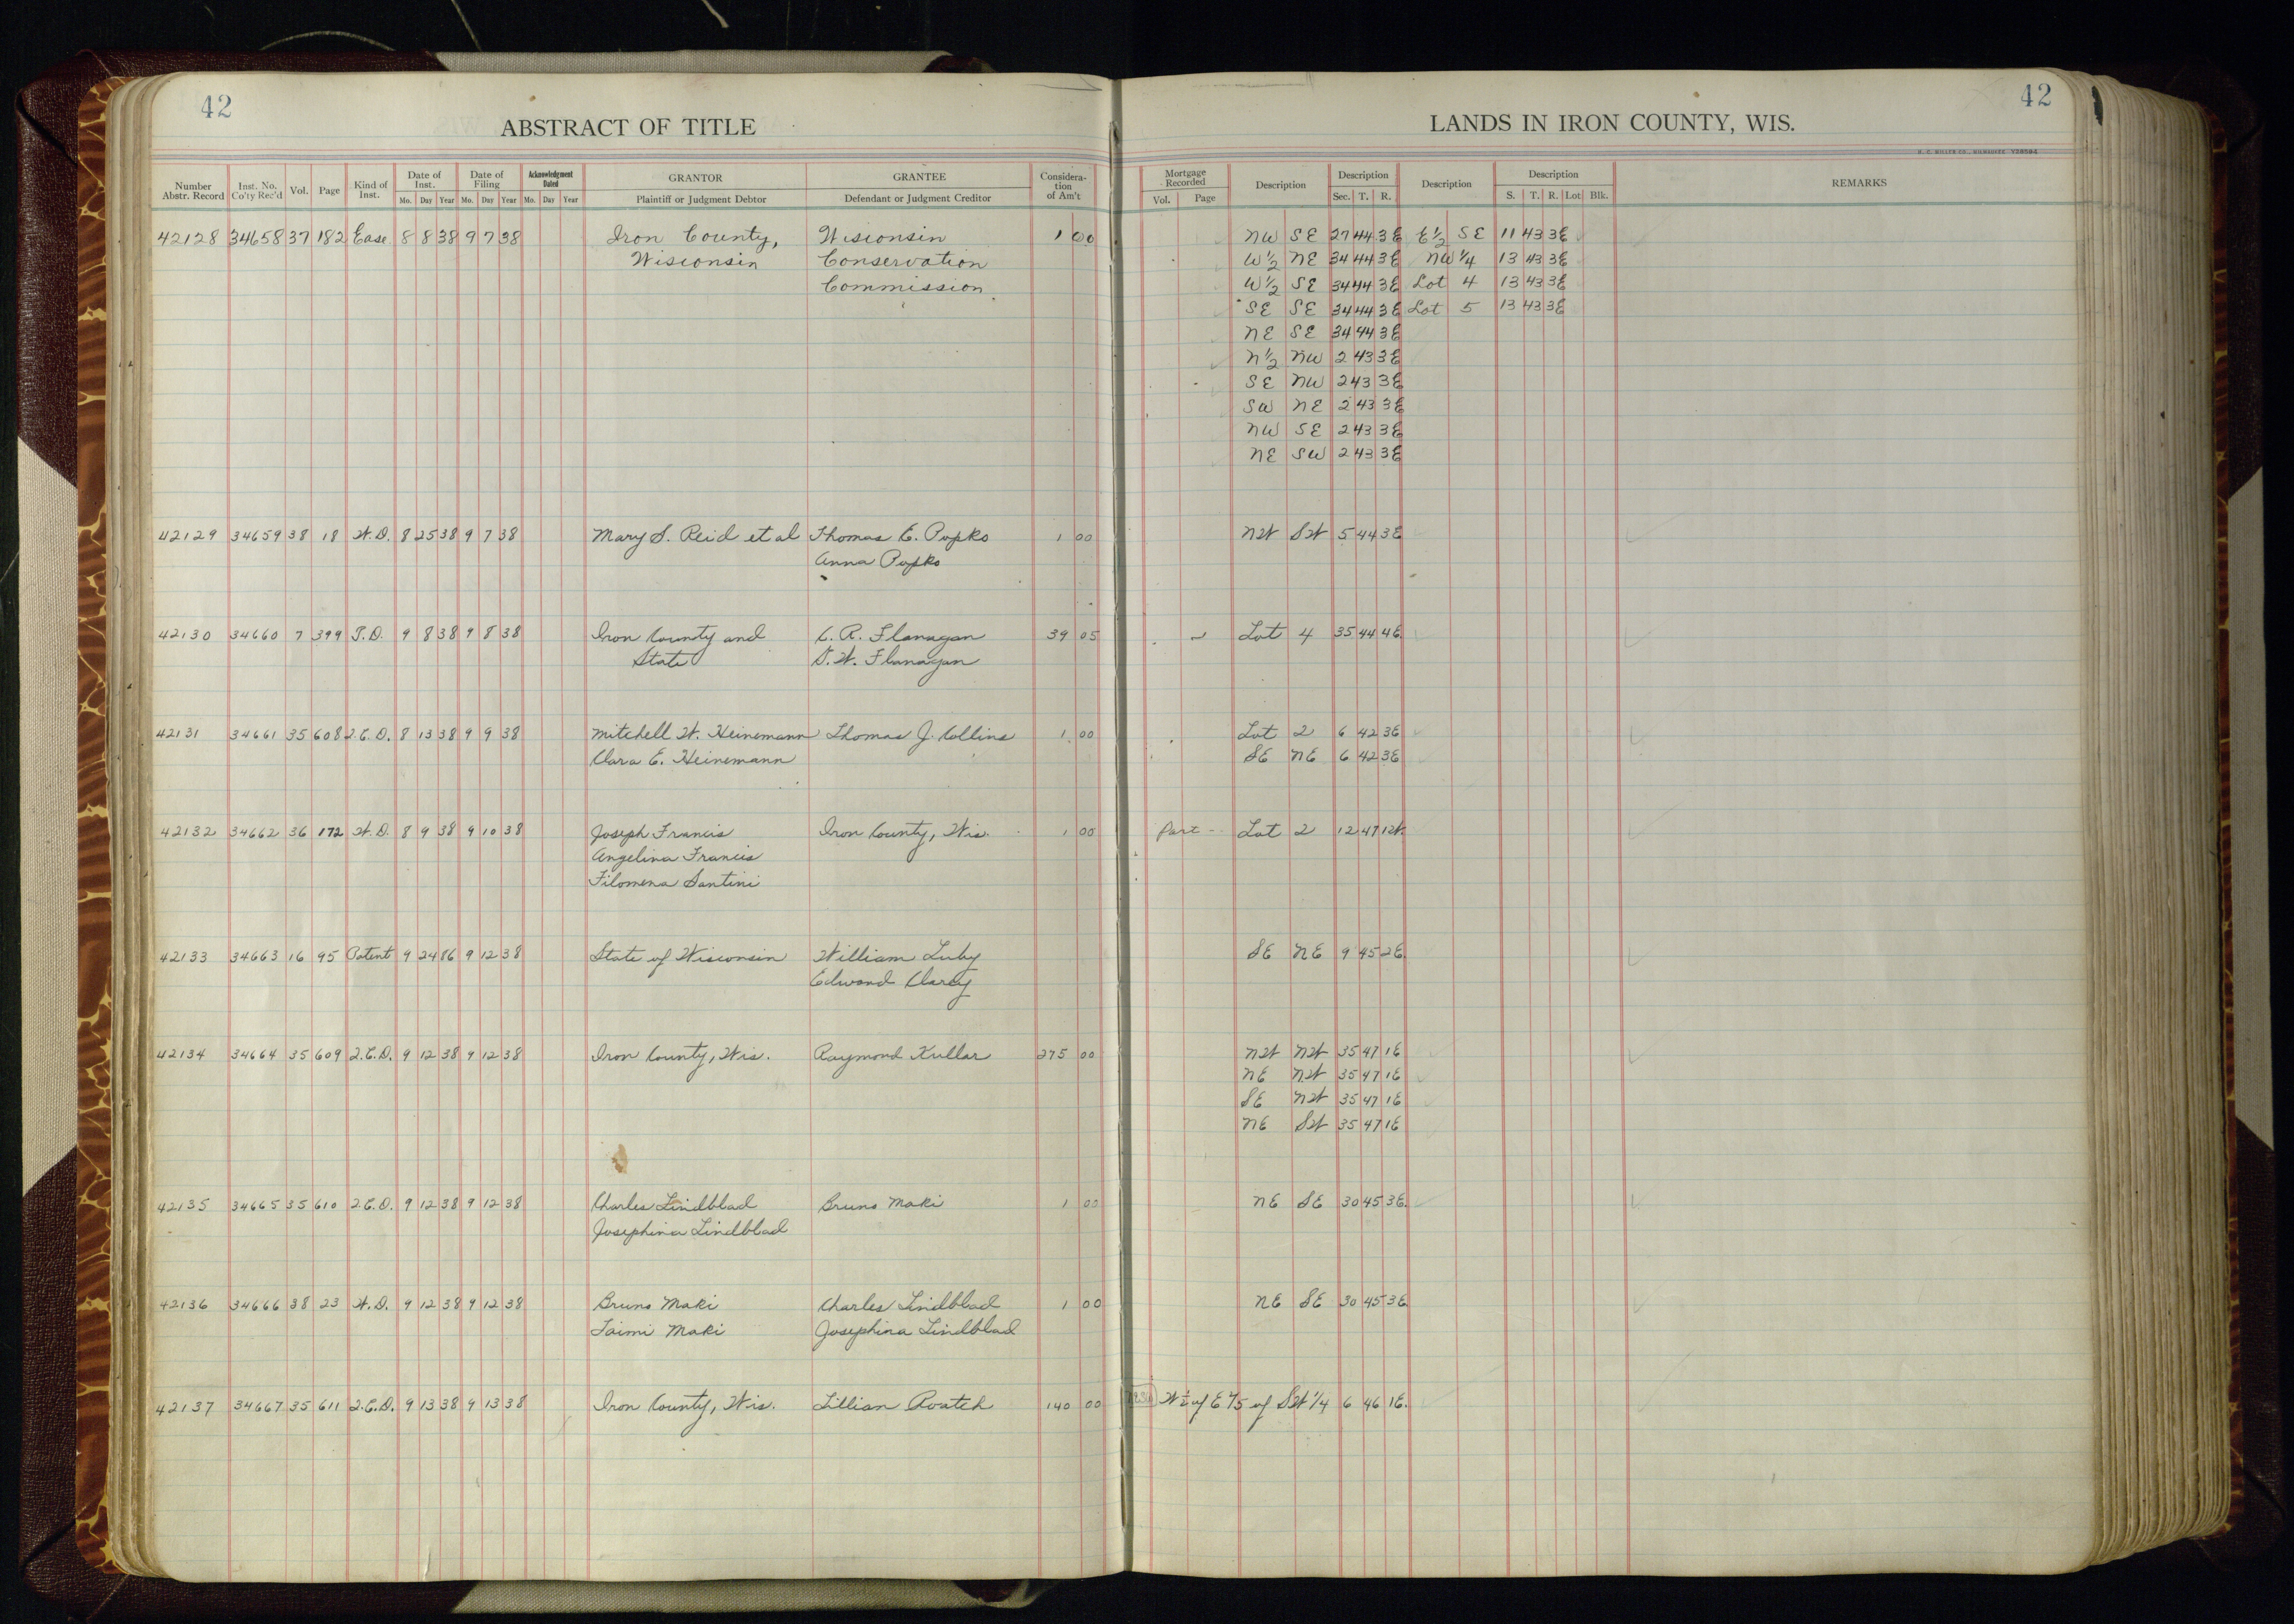 42
ABSTRACT OF TITLE
Number Abstr. Record | Inst. No. Co'ty Rec'd | Vol. | Page | Kind of Inst. | Date of Inst. Mo. Day Year | Date of Filing Mo. Day Year | Acknowledgment Dated Mo. Day Year | GRANTOR Plaintiff or Judgment Debtor | GRANTEE Defendant or Judgment Creditor | Consideration of Am't
42128 34658 37 182 Ease. 8 8 38 9 7 38 Iron County, Wisconsin 1 00
Wisconsin Conservation
Commission
42129 34659 38 18 W.D. 8 25 38 9 7 38 Mary S. Reid et al Thomas E. Popko 1 00
Anna Popko
42130 34660 7 399 T.D. 9 8 38 9 8 38 Iron County and C. R. Flanagan 39 05
State D. W. Flanagan
42131 34661 35 608 Q.C.D. 8 13 38 9 9 38 Mitchell W. Heinemann Thomas J. Collins 1 00
Clara E. Heinemann
42132 34662 36 172 W.D. 8 9 38 9 10 38 Joseph Francis Iron County, Wis. 1 00
Angelina Francis
Filomena Santini
42133 34663 16 95 Patent 9 24 86 9 12 38 State of Wisconsin William Luby
Edward Clarey
42134 34664 35 609 Q.C.D. 9 12 38 9 12 38 Iron County, Wis. Raymond Kullar 275 00
42135 34665 35 610 Q.C.D. 9 12 38 9 12 38 Charles Lindblad Bruno Maki 1 00
Josephina Lindblad
42136 34666 38 23 W.D. 9 12 38 9 12 38 Bruno Maki Charles Lindblad 1 00
Taimi Maki Josephina Lindblad
42137 34667 35 611 Q.C.D. 9 13 38 9 13 38 Iron County, Wis. Lillian Roatch 140 00
42
LANDS IN IRON COUNTY, WIS.
Mortgage Recorded Vol. Page | Description | Description Sec. T. R. | Description | Description S. T. R. Lot Blk. | REMARKS
NW SE 27 44 3E E½ SE 11 43 3E
W½ NE 34 44 3E NW¼ 13 43 3E
W½ SE 34 44 3E Lot 4 13 43 3E
SE SE 34 44 3E Lot 5 13 43 3E
NE SE 34 44 3E
N½ NW 2 43 3E
SE NW 2 43 3E
SW NE 2 43 3E
NW SE 2 43 3E
NE SW 2 43 3E
NW SW 5 44 3E
Lot 4 35 44 4E.
Lot 2 6 42 3E
SE NE 6 42 3E
Part - Lot 2 12 47 1W.
SE NE 9 45 2E.
NW NW 35 47 1E
NE NW 35 47 1E
SE NW 35 47 1E
NE SW 35 47 1E
NE SE 30 45 3E.
NE SE 30 45 3E
W½ of E⅘ of SW¼ 6 46 1E.